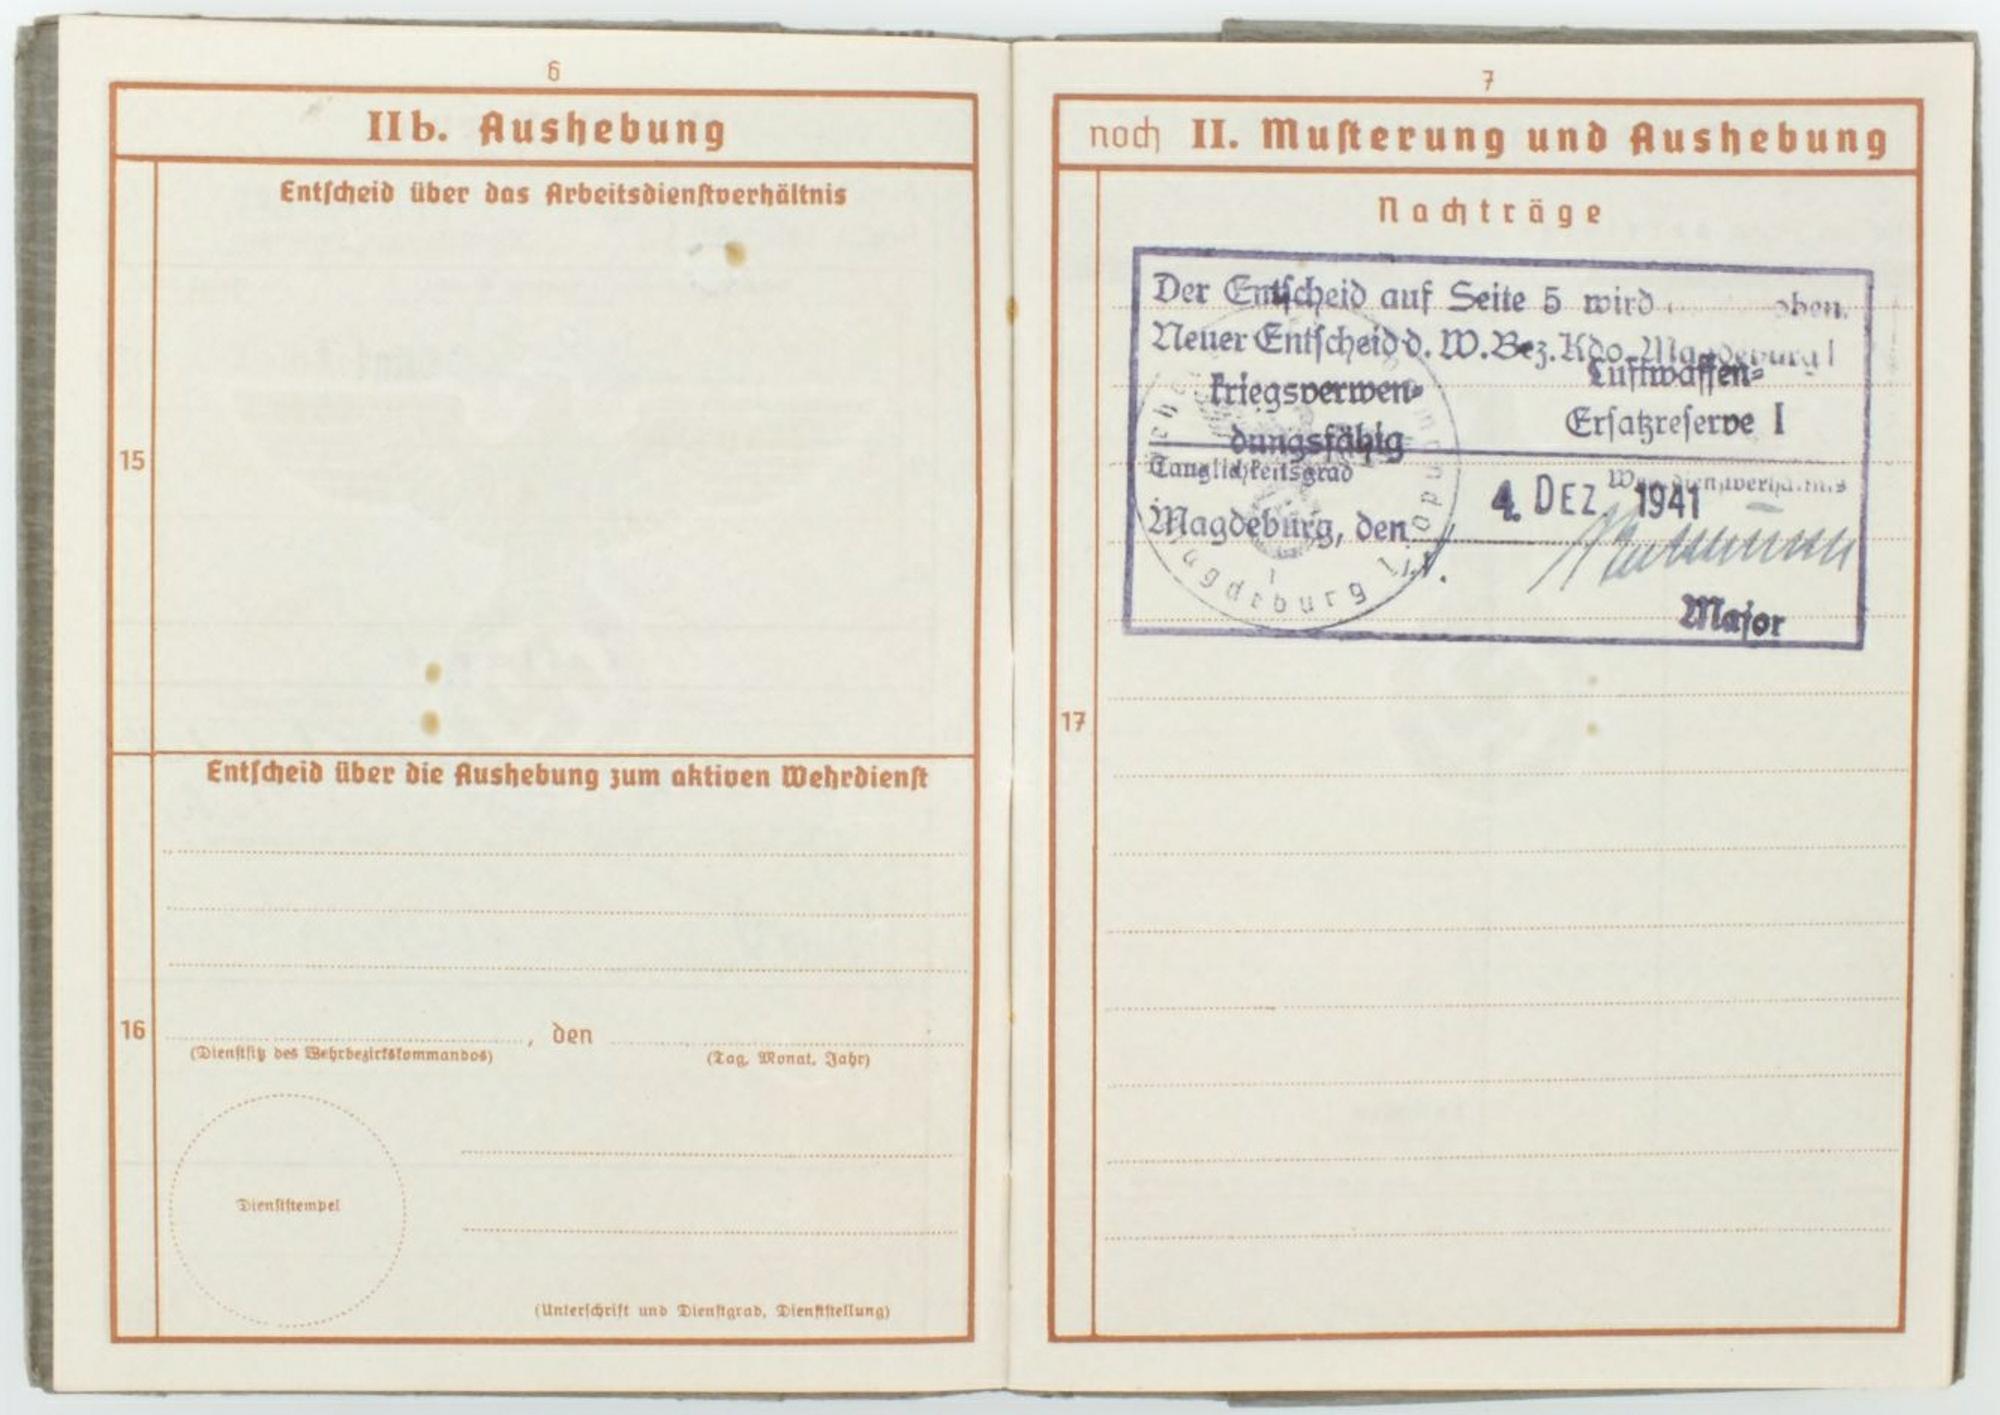 6
IIb. Aushebung
Entscheid über das Arbeitsdienstverhältnis
15
Entscheid über die Aushebung zum aktiven Wehrdienst
16
, den
(Dienstsitz des Wehrbezirkskommandos) (Tag, Monat, Jahr)
Dienststempel
(Unterschrift und Dienstgrad, Dienststellung)
7
noch II. Musterung und Aushebung
Nachträge
17
Der Entscheid auf Seite 5 wird oben.
Neuer Entscheid d. W.Bez.Kdo. Magdeburg I
kriegsverwen= Luftwaffen=
dungsfähig Ersatzreserve I
Tauglichkeitsgrad Wehrdienstverhältnis
Magdeburg, den 4. DEZ. 1941
I.A.
Major
Magdeburg